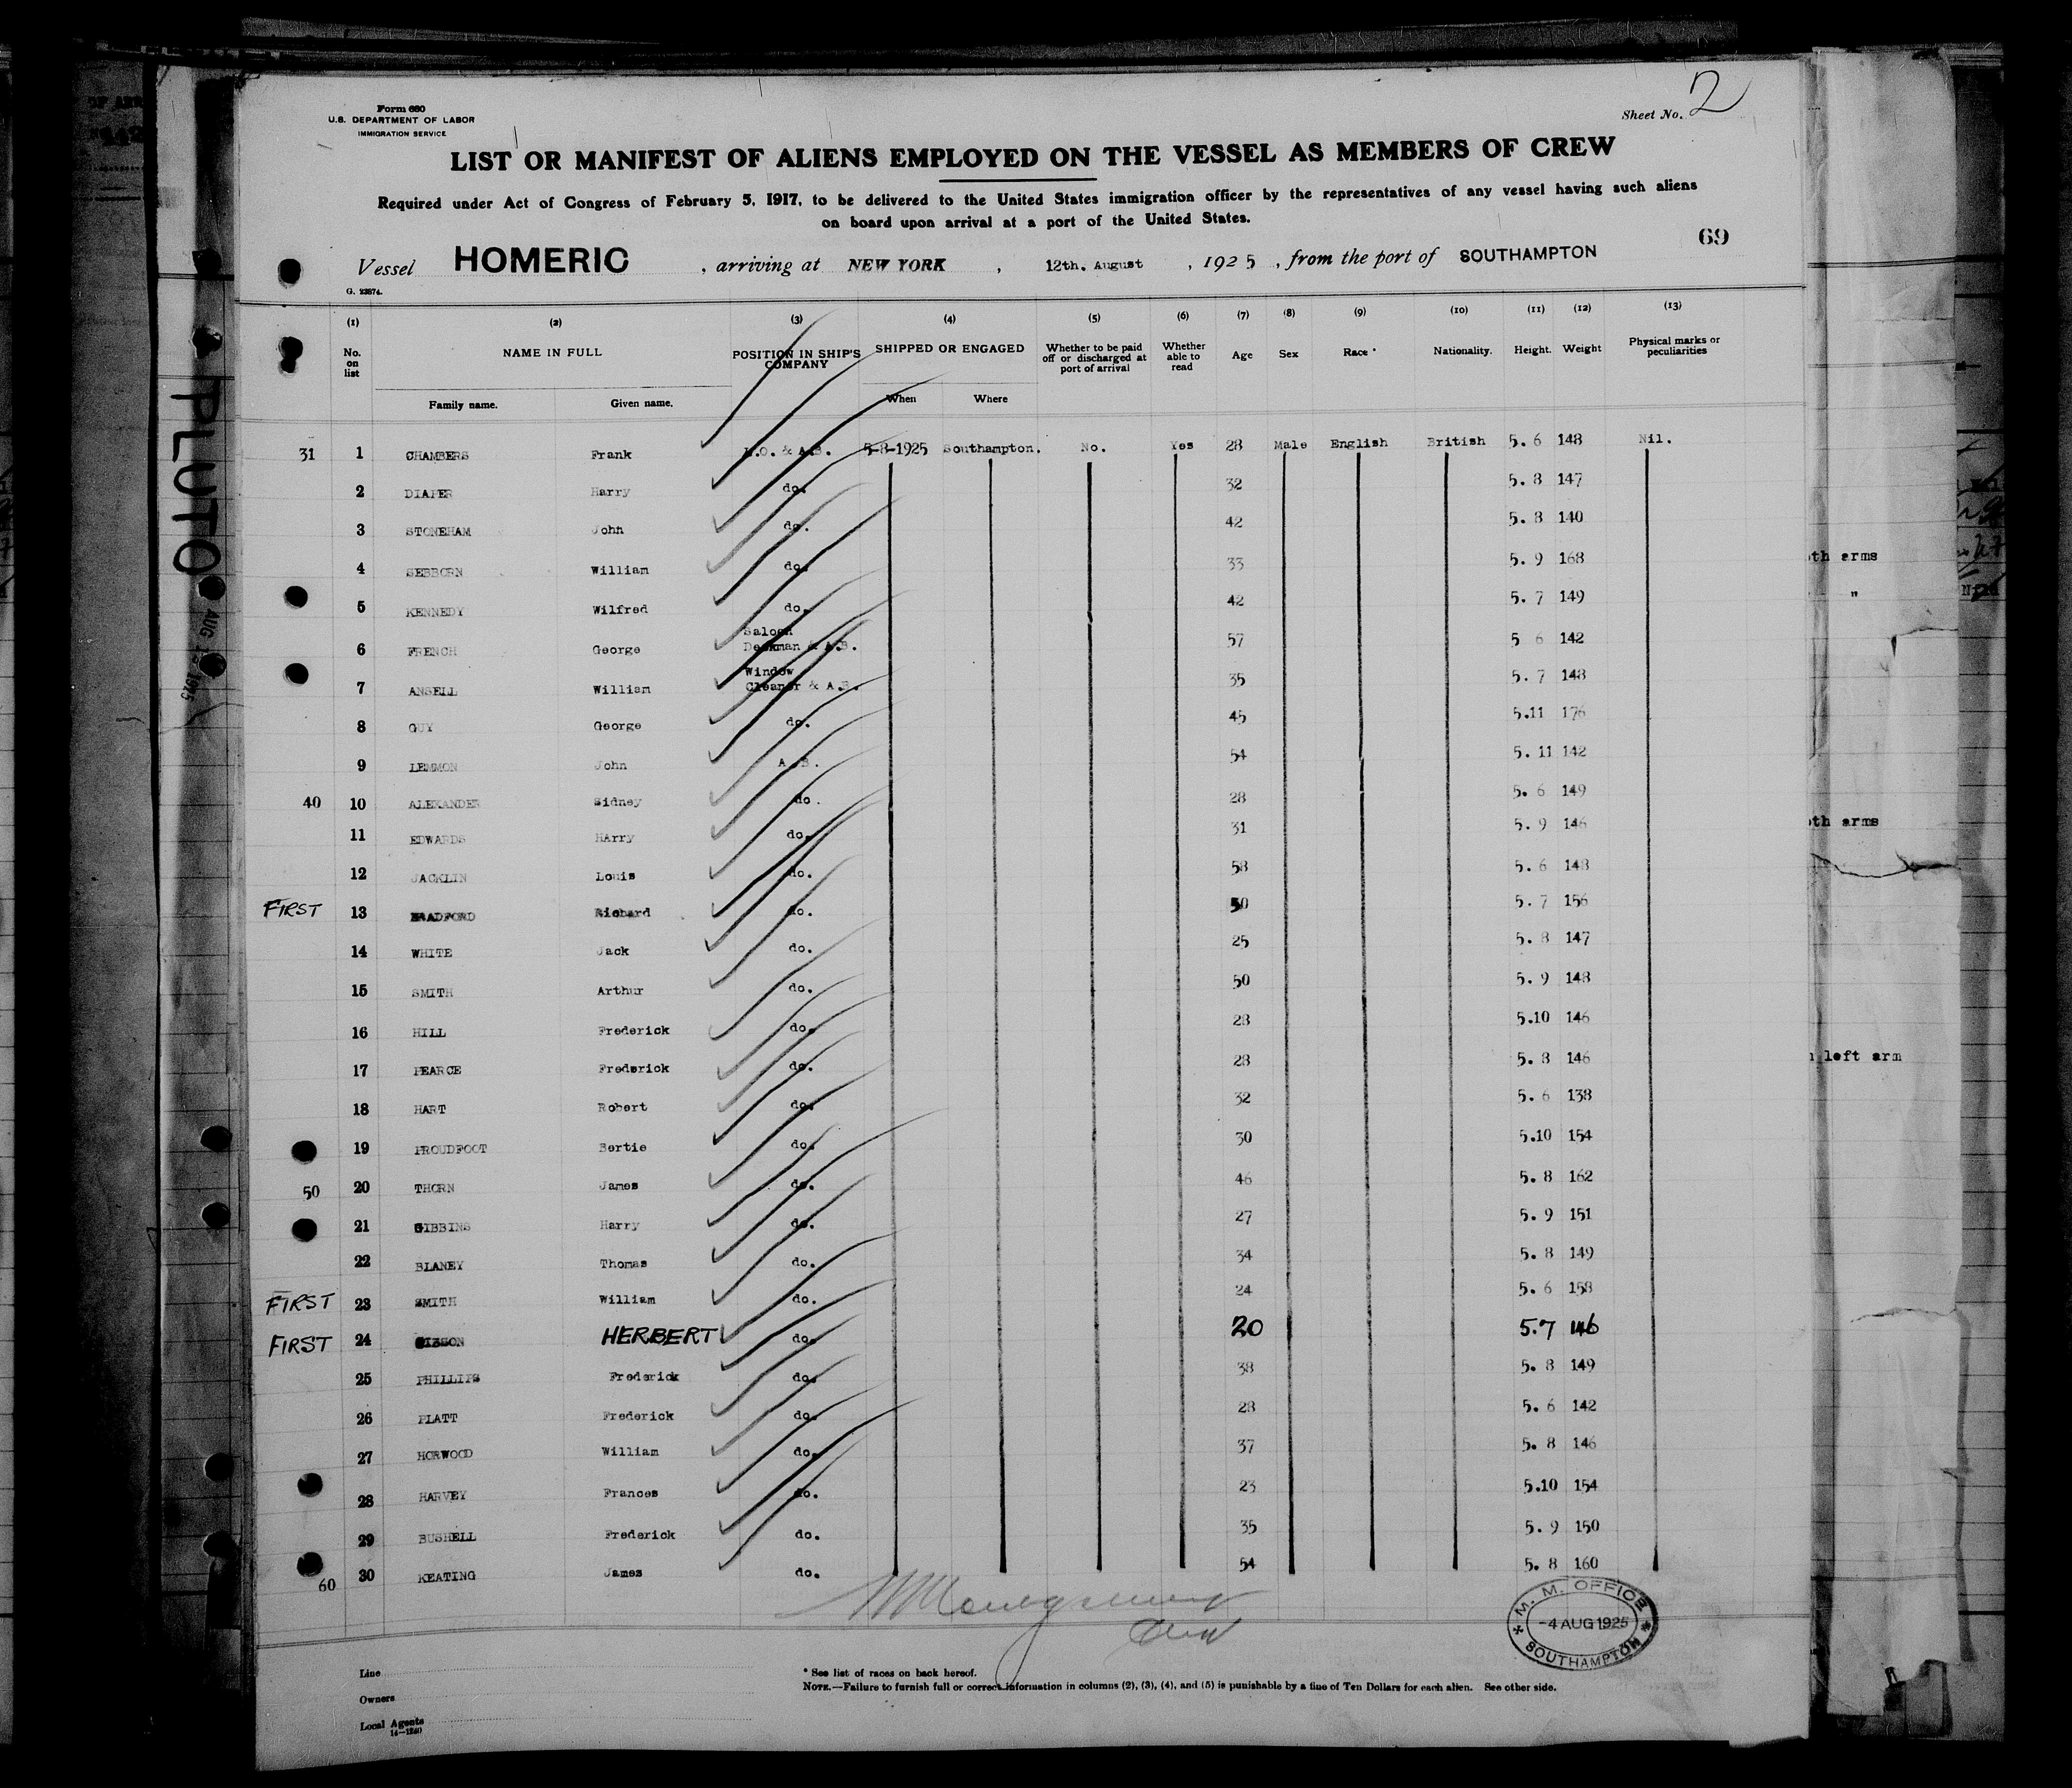 Form 680
U.S. DEPARTMENT OF LABOR
IMMIGRATION SERVICE
Sheet No. 2
LIST OR MANIFEST OF ALIENS EMPLOYED ON THE VESSEL AS MEMBERS OF CREW
Required under Act of Congress of February 5, 1917, to be delivered to the United States immigration officer by the representatives of any vessel having such aliens
on board upon arrival at a port of the United States.
69
Vessel HOMERIC , arriving at NEW YORK , 12th. August , 1925 , from the port of SOUTHAMPTON
G. 23874.
(1) (2) (3) (4) (5) (6) (7) (8) (9) (10) (11) (12) (13)
No. on list NAME IN FULL POSITION IN SHIP'S COMPANY SHIPPED OR ENGAGED Whether to be paid off or discharged at port of arrival Whether able to read Age Sex Race * Nationality. Height. Weight Physical marks or peculiarities
Family name. Given name. When Where
31 1 CHAMBERS Frank & A.B. 5-8-1925 Southampton. No. Yes 28 Male English British 5. 6 148 Nil.
2 DIAPER Harry do. 32 5. 8 147
3 STONEHAM John do. 42 5. 8 140
4 SEBBORN William do. 33 5. 9 168
5 KENNEDY Wilfred do. 42 5. 7 149
6 FRENCH George Saloon Deckman & A.B. 57 5 6 142
7 ANSELL William Window Cleaner & A.B. 35 5. 7 148
8 GUY George do. 45 5.11 176
9 LEMMON John A.B. 54 5. 11 142
40 10 ALEXANDER Sidney do. 28 5. 6 149
11 EDWARDS HArry do. 31 5. 9 146
12 JACKLIN Louis do. 58 5. 6 148
FIRST 13 BRADFORD Richard do. 50 5. 7 156
14 WHITE Jack do. 25 5. 8 147
15 SMITH Arthur do. 50 5. 9 148
16 HILL Frederick do. 28 5.10 146
17 PEARCE Frederick do. 28 5. 8 146
18 HART Robert do. 32 5. 6 138
19 PROUDFOOT Bertie do. 30 5.10 154
50 20 THORN James do. 46 5. 8 162
21 GIBBINS Harry do. 27 5. 9 151
22 BLANEY Thomas do. 34 5. 8 149
FIRST 23 SMITH William do. 24 5. 6 158
FIRST 24 GIBSON HERBERT do. 20 5.7 146
25 PHILLIPS Frederick do. 38 5. 8 149
26 PLATT Frederick do. 28 5. 6 142
27 HORWOOD William do. 37 5. 8 146
28 HARVEY Frances do. 23 5.10 154
29 BUSHELL Frederick do. 35 5. 9 150
60 30 KEATING James do. 54 5. 8 160
M. M. OFFICE
-4 AUG 1925
SOUTHAMPTON
Line
Owners
Local Agents
* See list of races on back hereof.
NOTE.—Failure to furnish full or correct information in columns (2), (3), (4), and (5) is punishable by a fine of Ten Dollars for each alien. See other side.
PLUTO
arms
"
arms
left arm